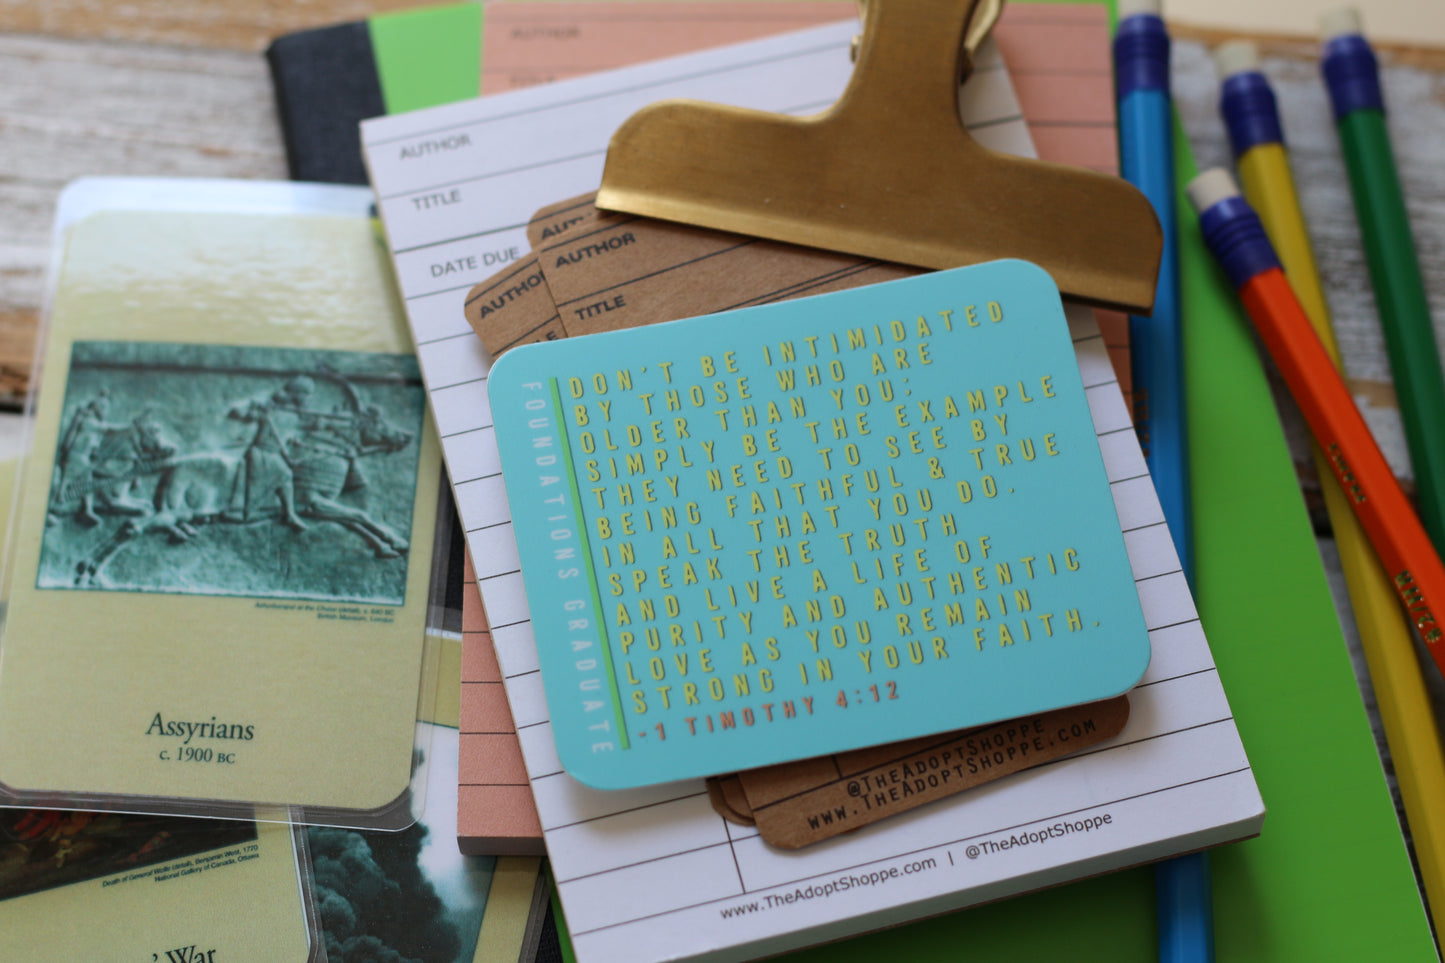 AUTHOR
TITLE
AUTHOR
TITLE
DATE DUE
AUTHOR
AUTHOR
TITLE
FOUNDATIONS GRADUATE
DON'T BE INTIMIDATED
BY THOSE WHO ARE
OLDER THAN YOU;
SIMPLY BE THE EXAMPLE
THEY NEED TO SEE BY
BEING FAITHFUL & TRUE
IN ALL THAT YOU DO.
SPEAK THE TRUTH
AND LIVE A LIFE OF
PURITY AND AUTHENTIC
LOVE AS YOU REMAIN
STRONG IN YOUR FAITH.
-1 TIMOTHY 4:12
@THEADOPTSHOPPE
WWW.THEADOPTSHOPPE.COM
www.TheAdoptShoppe.com | @TheAdoptShoppe
Ashurbanipal at the Chase (detail), c. 640 BC
British Museum, London
Assyrians
c. 1900 BC
Death of General Wolfe (detail), Benjamin West, 1770
National Gallery of Canada, Ottawa
' War